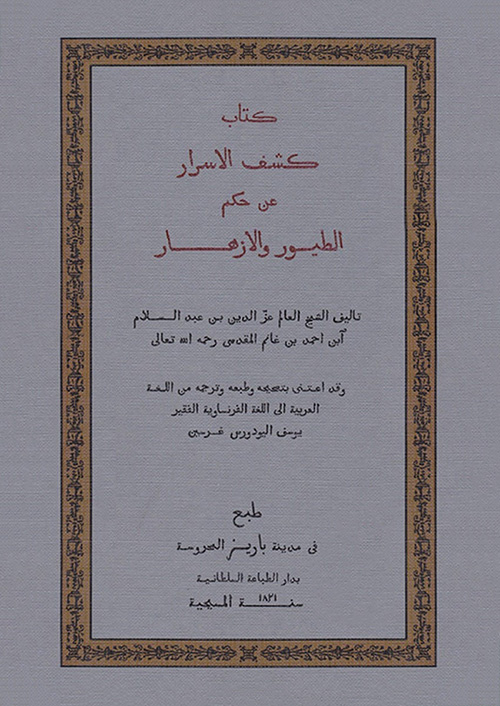 كتاب
كشف الاسرار
عن حكم
الطيور والازهار
تاليف الشيخ العالم عزّ الدين بن عبد السلام
آبن احمد بن غانم المقدسى رحمه اللّه تعالى
وقد اعتنى بتصحيحه وطبعه وترجمه من اللغة
العربية الى اللغة الفرنساوية الفقير
يوسف اليودورس غرسين
طبع
فى مدينة باريز المحروسة
بدار الطباعة السلطانية
سنة ١٨٢١ المسيحية